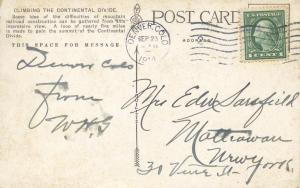 CLIMBING THE CONTINENTAL DIVIDE.
Some idea of the difficulties of mountain
railroad construction can be gathered from this
impressive view. A loop of nearly five miles
is made to gain the summit of the Continental
Divide.
THIS SPACE FOR MESSAGE.
POST CARD
DENVER, COLO.
SEP 23
ADDRESS
Denver Colo
from
W.H.S
Mrs Edw Sarsfield
Matteawan
New York